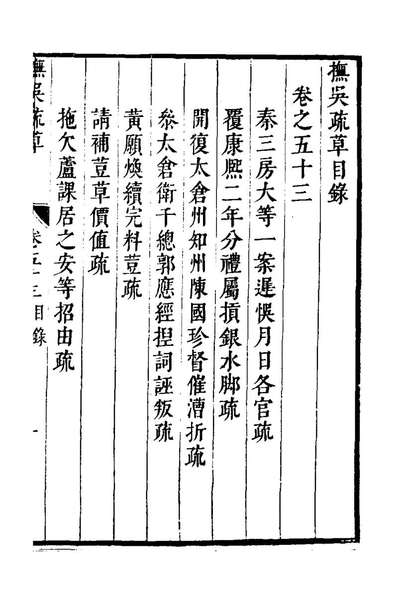 撫吳疏草目錄
卷之五十三
秦三房大等一案遲悞月日各官疏
覆康熙二年分禮屬損銀水脚疏
開復太倉州知州陳國珍督催漕折疏
叅太倉衛千總郭應經揑詞誣叛疏
黄願煥續完料荳疏
請補荳草價值疏
拖欠蘆課居之安等招由疏
撫吳疏草
卷五十三目錄
一